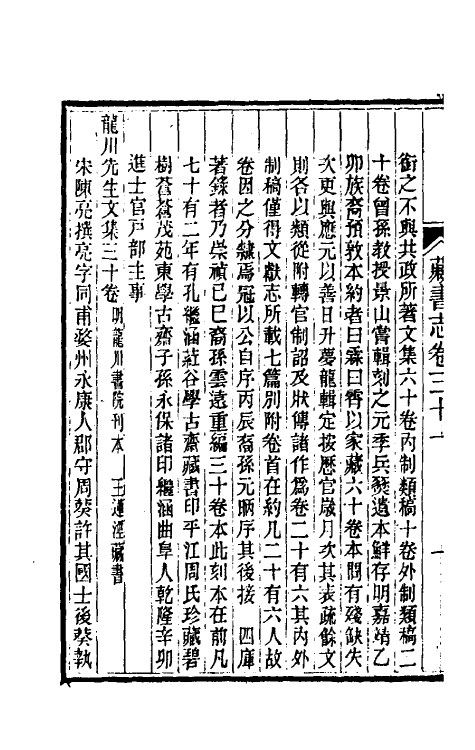 藏書志卷三十一
銜之不與共政所著文集六十卷內制類稿十卷外制類稿二
十卷曾孫教授景山嘗輯刻之元季兵燹遺本鮮存明嘉靖乙
卯族裔預敦本約者曰霖曰霽以家藏六十卷本間有殘缺失
次更與應元以善日升夢龍輯定按歷官歲月次其表疏餘文
則各以類從附轉官制詔及狀傳諸作爲卷二十有六其內外
制稿僅得文獻志所載七篇別附卷首在約凡二十有六人故
卷因之分隸焉冠以公自序丙辰裔孫元晒序其後接 四庫
著錄者乃崇禎己巳裔孫雲遠重編三十卷本此刻本在前凡
七十有二年有孔繼涵葒谷學古齋藏書印平江周氏珍藏碧
樹蒼蒼茂苑東學古齋子孫永保諸印繼涵曲阜人乾隆辛卯
進士官戶部主事
龍川先生文集三十卷 明龍川書院刊本 王蓮涇藏書
宋陳亮撰亮字同甫婺州永康人郡守周葵許其國士後葵執